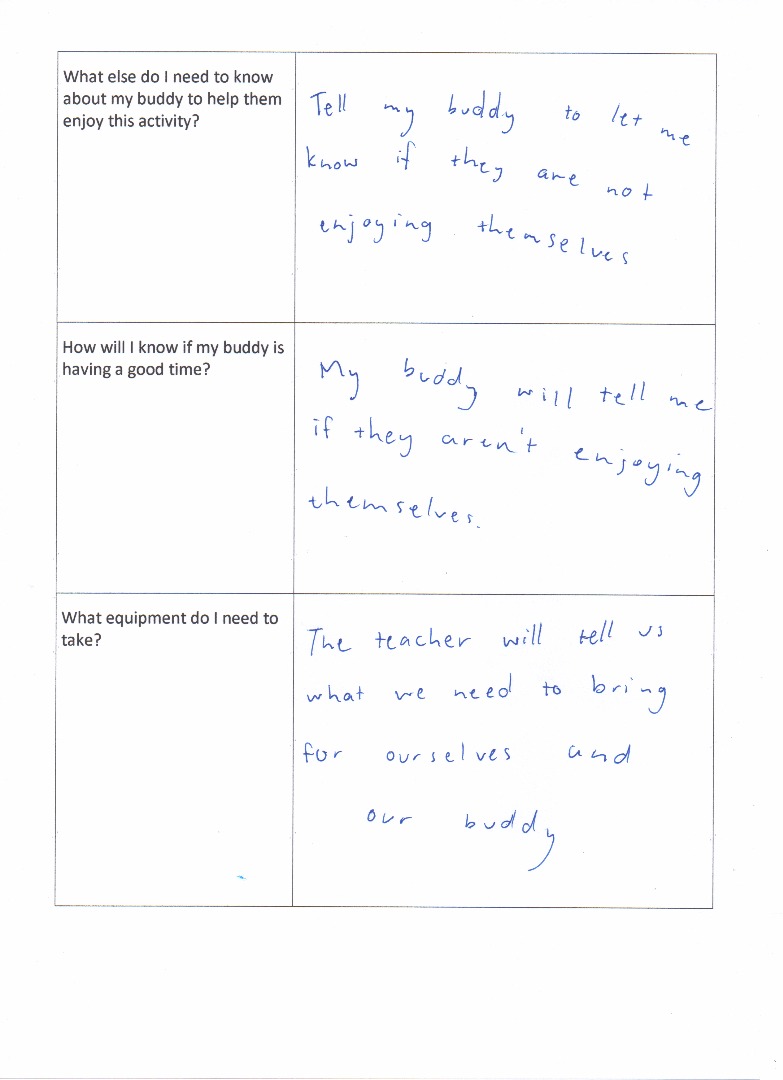 What else do I need to know
about my buddy to help them
enjoy this activity?
Tell my buddy to let me
know if they are not
enjoying themselves
How will I know if my buddy is
having a good time?
My buddy will tell me
if they aren't enjoying
themselves.
What equipment do I need to
take?
The teacher will tell us
what we need to bring
for ourselves and
our buddy